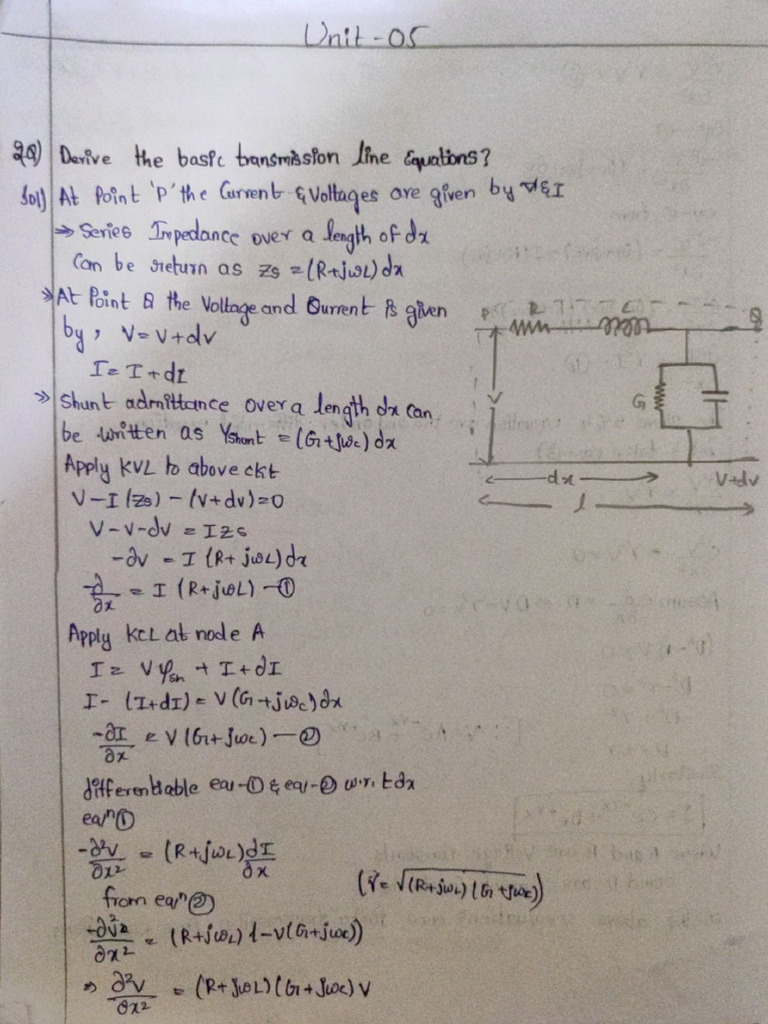 Unit-05
2Q) Derive the basic transmission line Equations?
Sol) At Point 'P' the Current & Voltages are given by V & I
⇒ Series Impedance over a length of dx
Can be return as Zs = (R+jωL) dx
⇒ At Point Q the Voltage and Current is given
by, V = V+dv
I = I + dI
⇒ Shunt admittance over a length dx can
be written as Yshunt = (G+jωc) dx
Apply KVL to above ckt
V-I(Zs) - (V+dv) = 0
V-V-dv = IZs
-∂v = I (R+jωL) dx
-∂/∂x = I (R+jωL) -①
Apply KCL at node A
I = V Ysh + I + dI
I - (I+dI) = V(G+jωc) dx
-∂I/∂x = V(G+jωc) -②
differentiable eqn-① & eqn-② w.r.t dx
eqn①
-∂²V/∂x² = (R+jωL) dI/∂x
from eqn②
(γ = √(R+jωL)(G+jωc))
-∂²v/∂x² = (R+jωL) (-V(G+jωc))
⇒ ∂²v/∂x² = (R+jωL) (G+jωc) V
P
R
L
Q
V
G
dx
V+dv
l